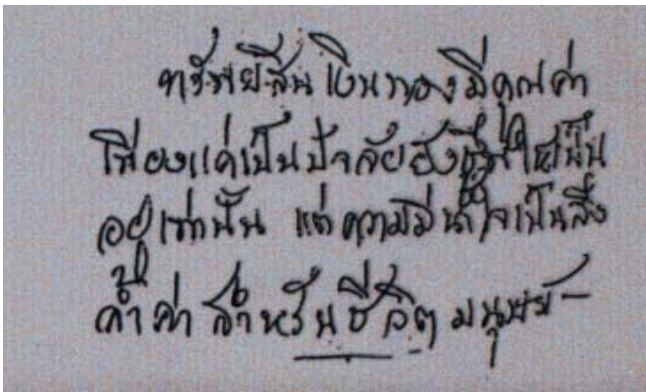 ทรัพย์สินเงินทองมีคุณค่า
เพียงแค่เป็นปัจจัยยังชีพให้เป็น
อยู่เท่านั้น แต่ความมีน้ำใจเป็นสิ่ง
ล้ำค่าสำหรับชีวิตมนุษย์